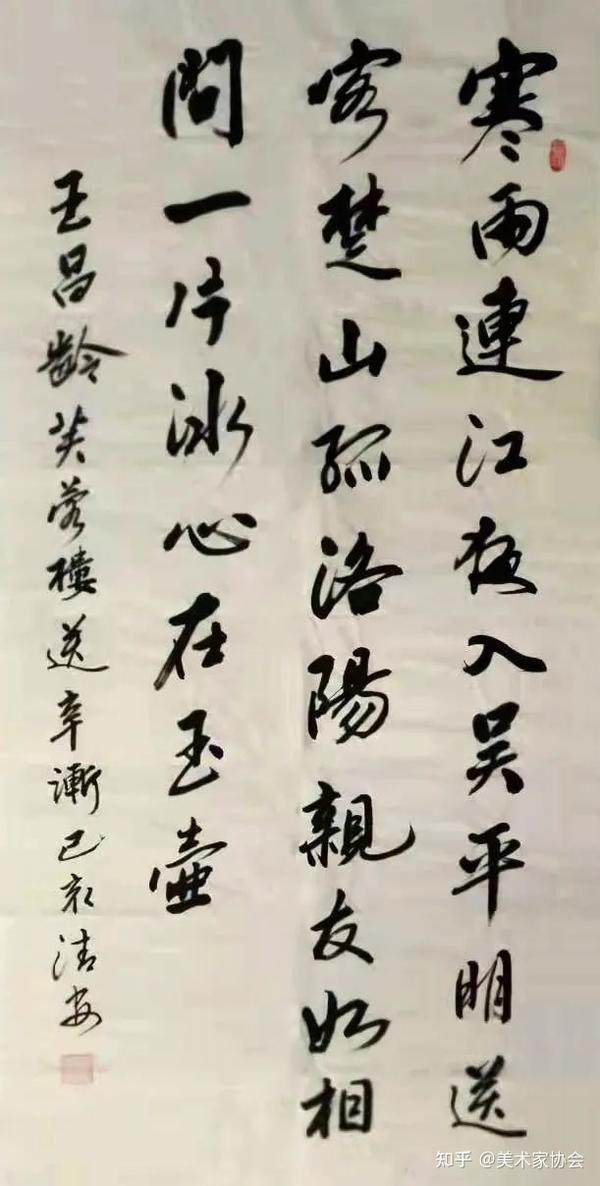 寒雨連江夜入吴平明送
客楚山孤洛陽親友如相
問一片冰心在玉壶
王昌齡芙蓉樓送辛漸己亥清安
知乎 @美术家协会